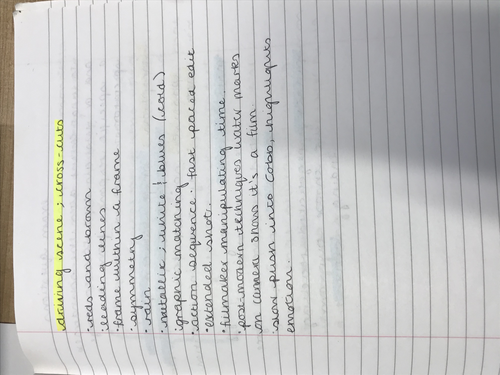 driving scene ; cross-cuts
· reds and brown
· leading lines
· frame within a frame
· symmetry
· rain
· metallic ; white | blues (cold)
· graphic matching
· action sequence . fast paced edit
· extended shot.
· filmaker manipulating time.
· post-modern techniques water marks
on camera shows it's a film
· slow push into Cobb, highlights
emotion.